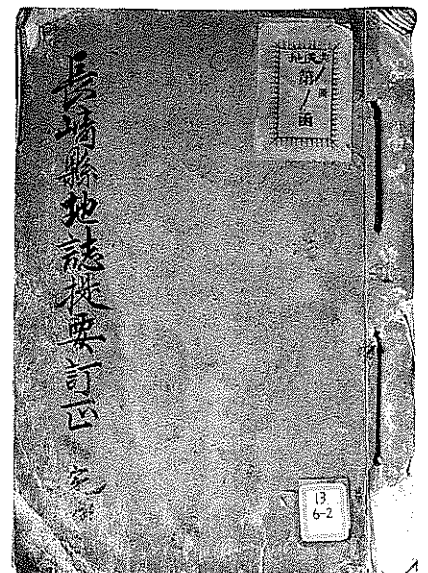 長崎縣地誌提要訂正 完
第ノ函
13
6-2